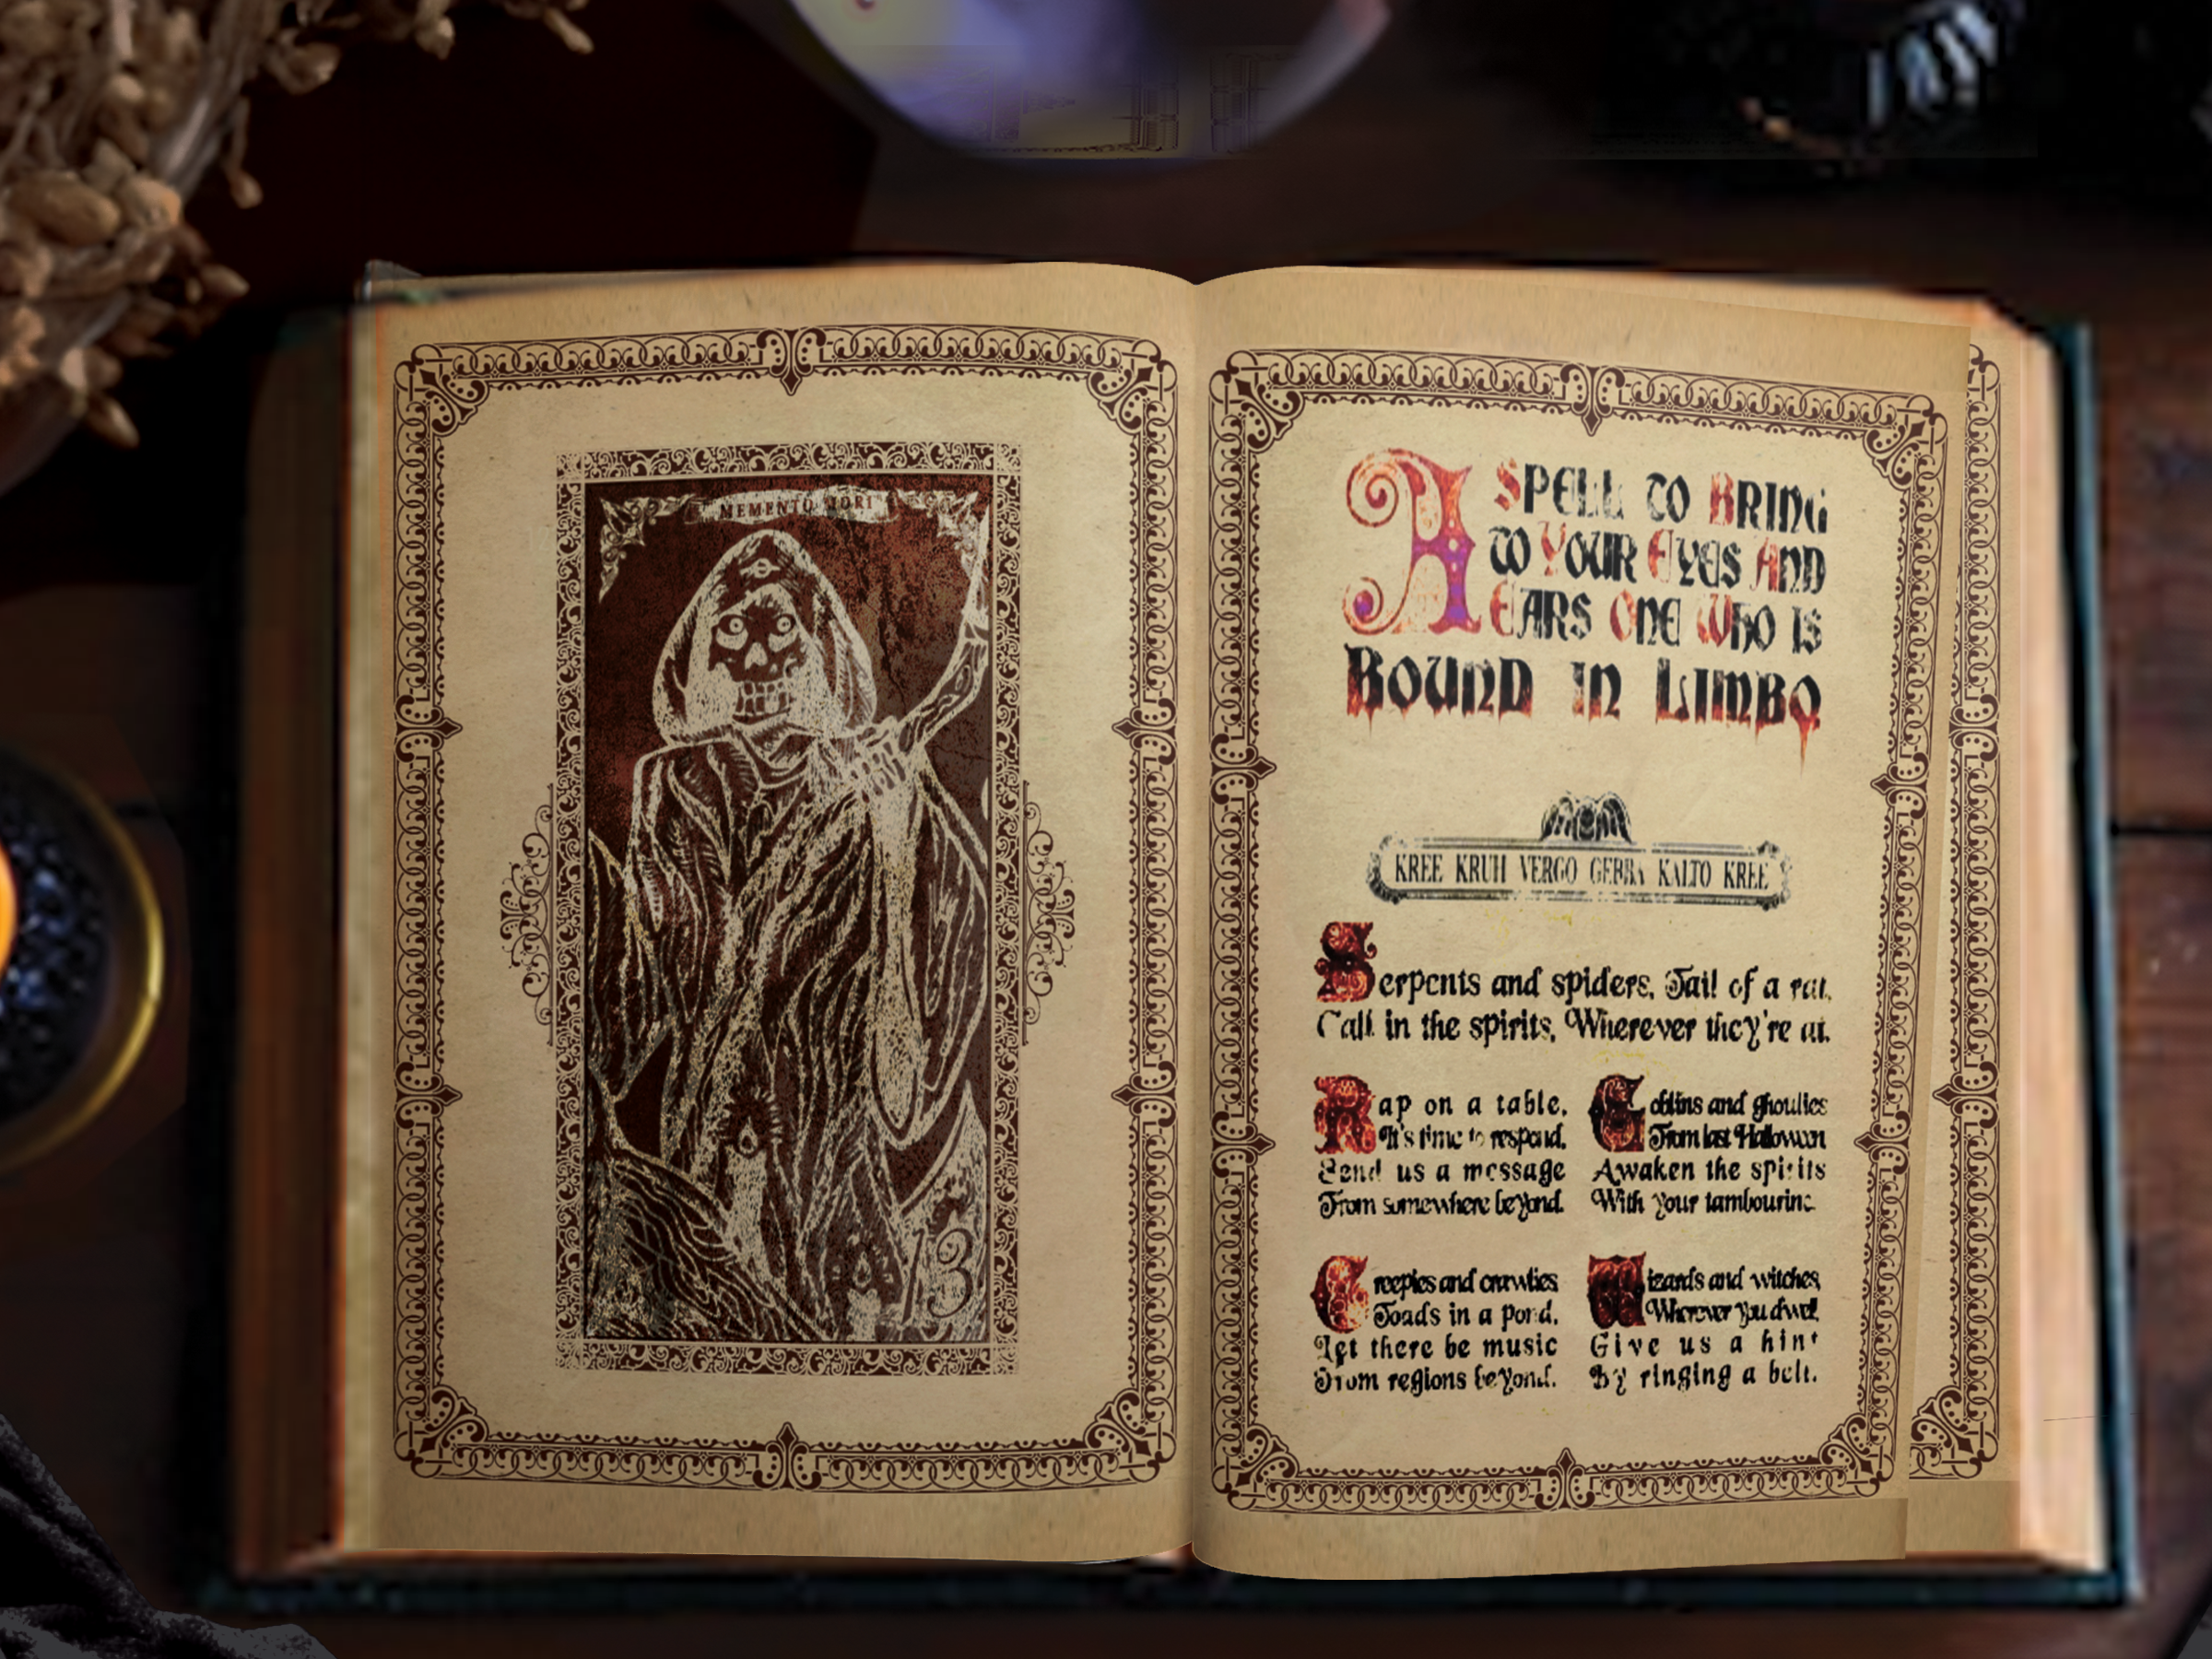 MEMENTO MORI
13
A SPELL TO BRING
TO YOUR EYES AND
EARS ONE WHO IS
BOUND IN LIMBO
KREE KRUH VERGO GEBBA KALTO KREE
Serpents and spiders, Tail of a rat,
Call in the spirits, Wherever they're at.
Rap on a table,
It's time to respond,
Send us a message
From somewhere beyond.
Goblins and ghoulies
From last Halloween
Awaken the spirits
With your tambourine.
Creepies and crawlies
Toads in a pond,
Let there be music
From regions beyond.
Wizards and witches,
Wherever you dwell,
Give us a hint
By ringing a bell.